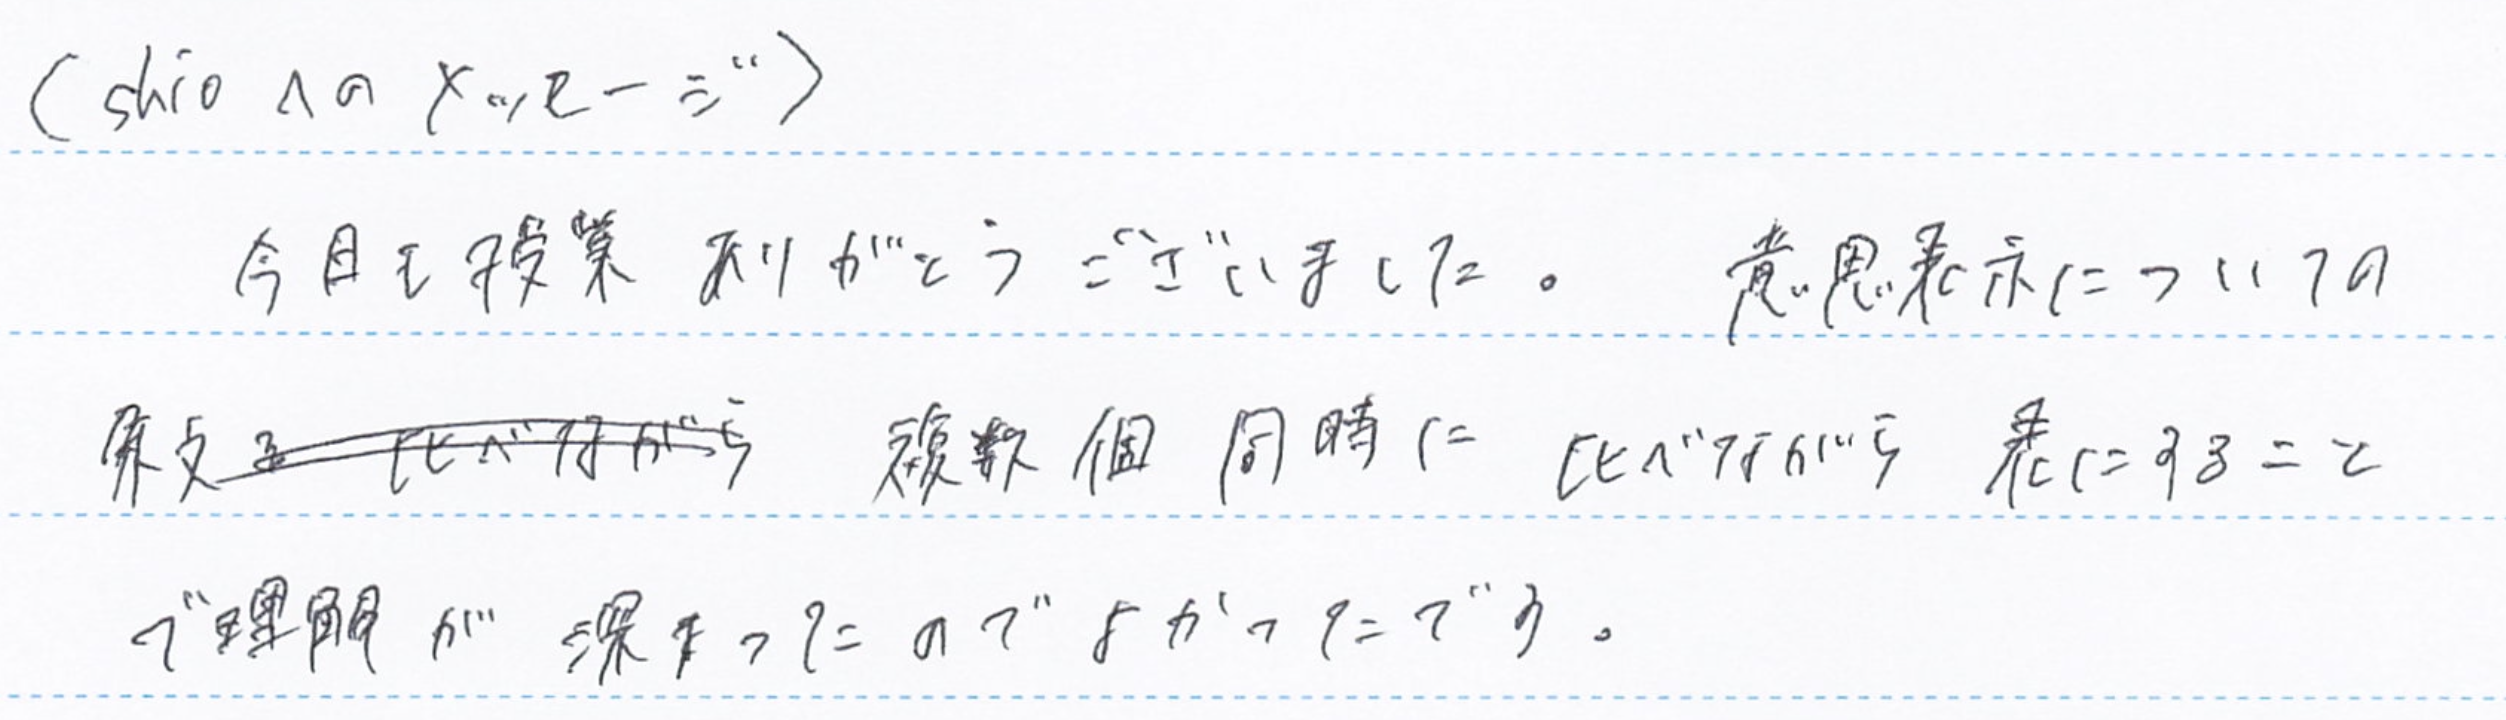 (shioへのメッセージ)
今日も授業ありがとうございました。 意思表示についての
条文を比べながら 複数個同時に比べながら表にすること
で理解が深まったのでよかったです。